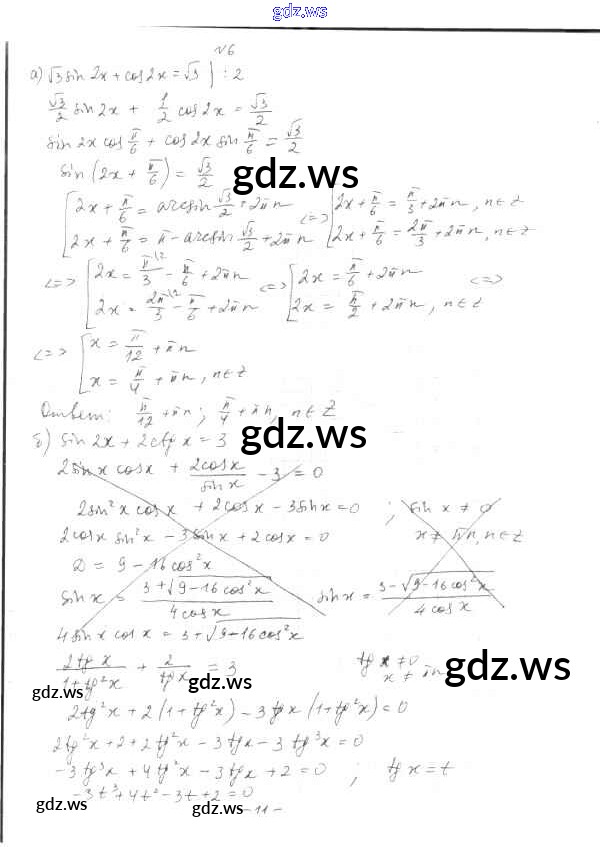 gdz.ws
№6
а) √3 sin 2x + cos 2x = √3 | : 2
√3/2 sin 2x + 1/2 cos 2x = √3/2
sin 2x cos π/6 + cos 2x sin π/6 = √3/2
sin (2x + π/6) = √3/2
gdz.ws
[ 2x + π/6 = arcsin √3/2 + 2πn <=> [ 2x + π/6 = π/3 + 2πn, n∈Z
2x + π/6 = π - arcsin √3/2 + 2πn 2x + π/6 = 2π/3 + 2πn, n∈Z
<=> [ 2x = π/3 - π/6 + 2πn <=> [ 2x = π/6 + 2πn <=>
2x = 2π/3 - π/6 + 2πn 2x = π/2 + 2πn, n∈Z
<=> [ x = π/12 + πn
x = π/4 + πn, n∈Z
Ответ: π/12 + πn; π/4 + πn, n∈Z
gdz.ws
б) sin 2x + 2ctg x = 3
2 sin x cos x + 2cos x / sin x - 3 = 0
2sin² x cos x + 2cos x - 3sin x = 0 ; sin x ≠ 0
2cos x sin² x - 3 sin x + 2 cos x = 0 x ≠ πn, n∈Z
D = 9 - 16 cos² x
sin x = 3 + √9 - 16 cos² x / 4 cos x sin x = 3 - √9 - 16 cos² x / 4 cos x
4 sin x cos x = 3 + √9 - 16 cos² x
2 tg x / 1 + tg² x + 2 / tg x = 3 tg x ≠ 0
x ≠ πn
gdz.ws
gdz.ws
gdz.ws
2tg² x + 2 (1 + tg² x) - 3 tg x (1 + tg² x) = 0
2tg² x + 2 + 2 tg² x - 3 tg x - 3 tg³ x = 0
-3 tg³ x + 4 tg² x - 3 tg x + 2 = 0 ; tg x = t
-3t³ + 4t² - 3t + 2 = 0
gdz.ws
gdz.ws
gdz.ws
- 11 -